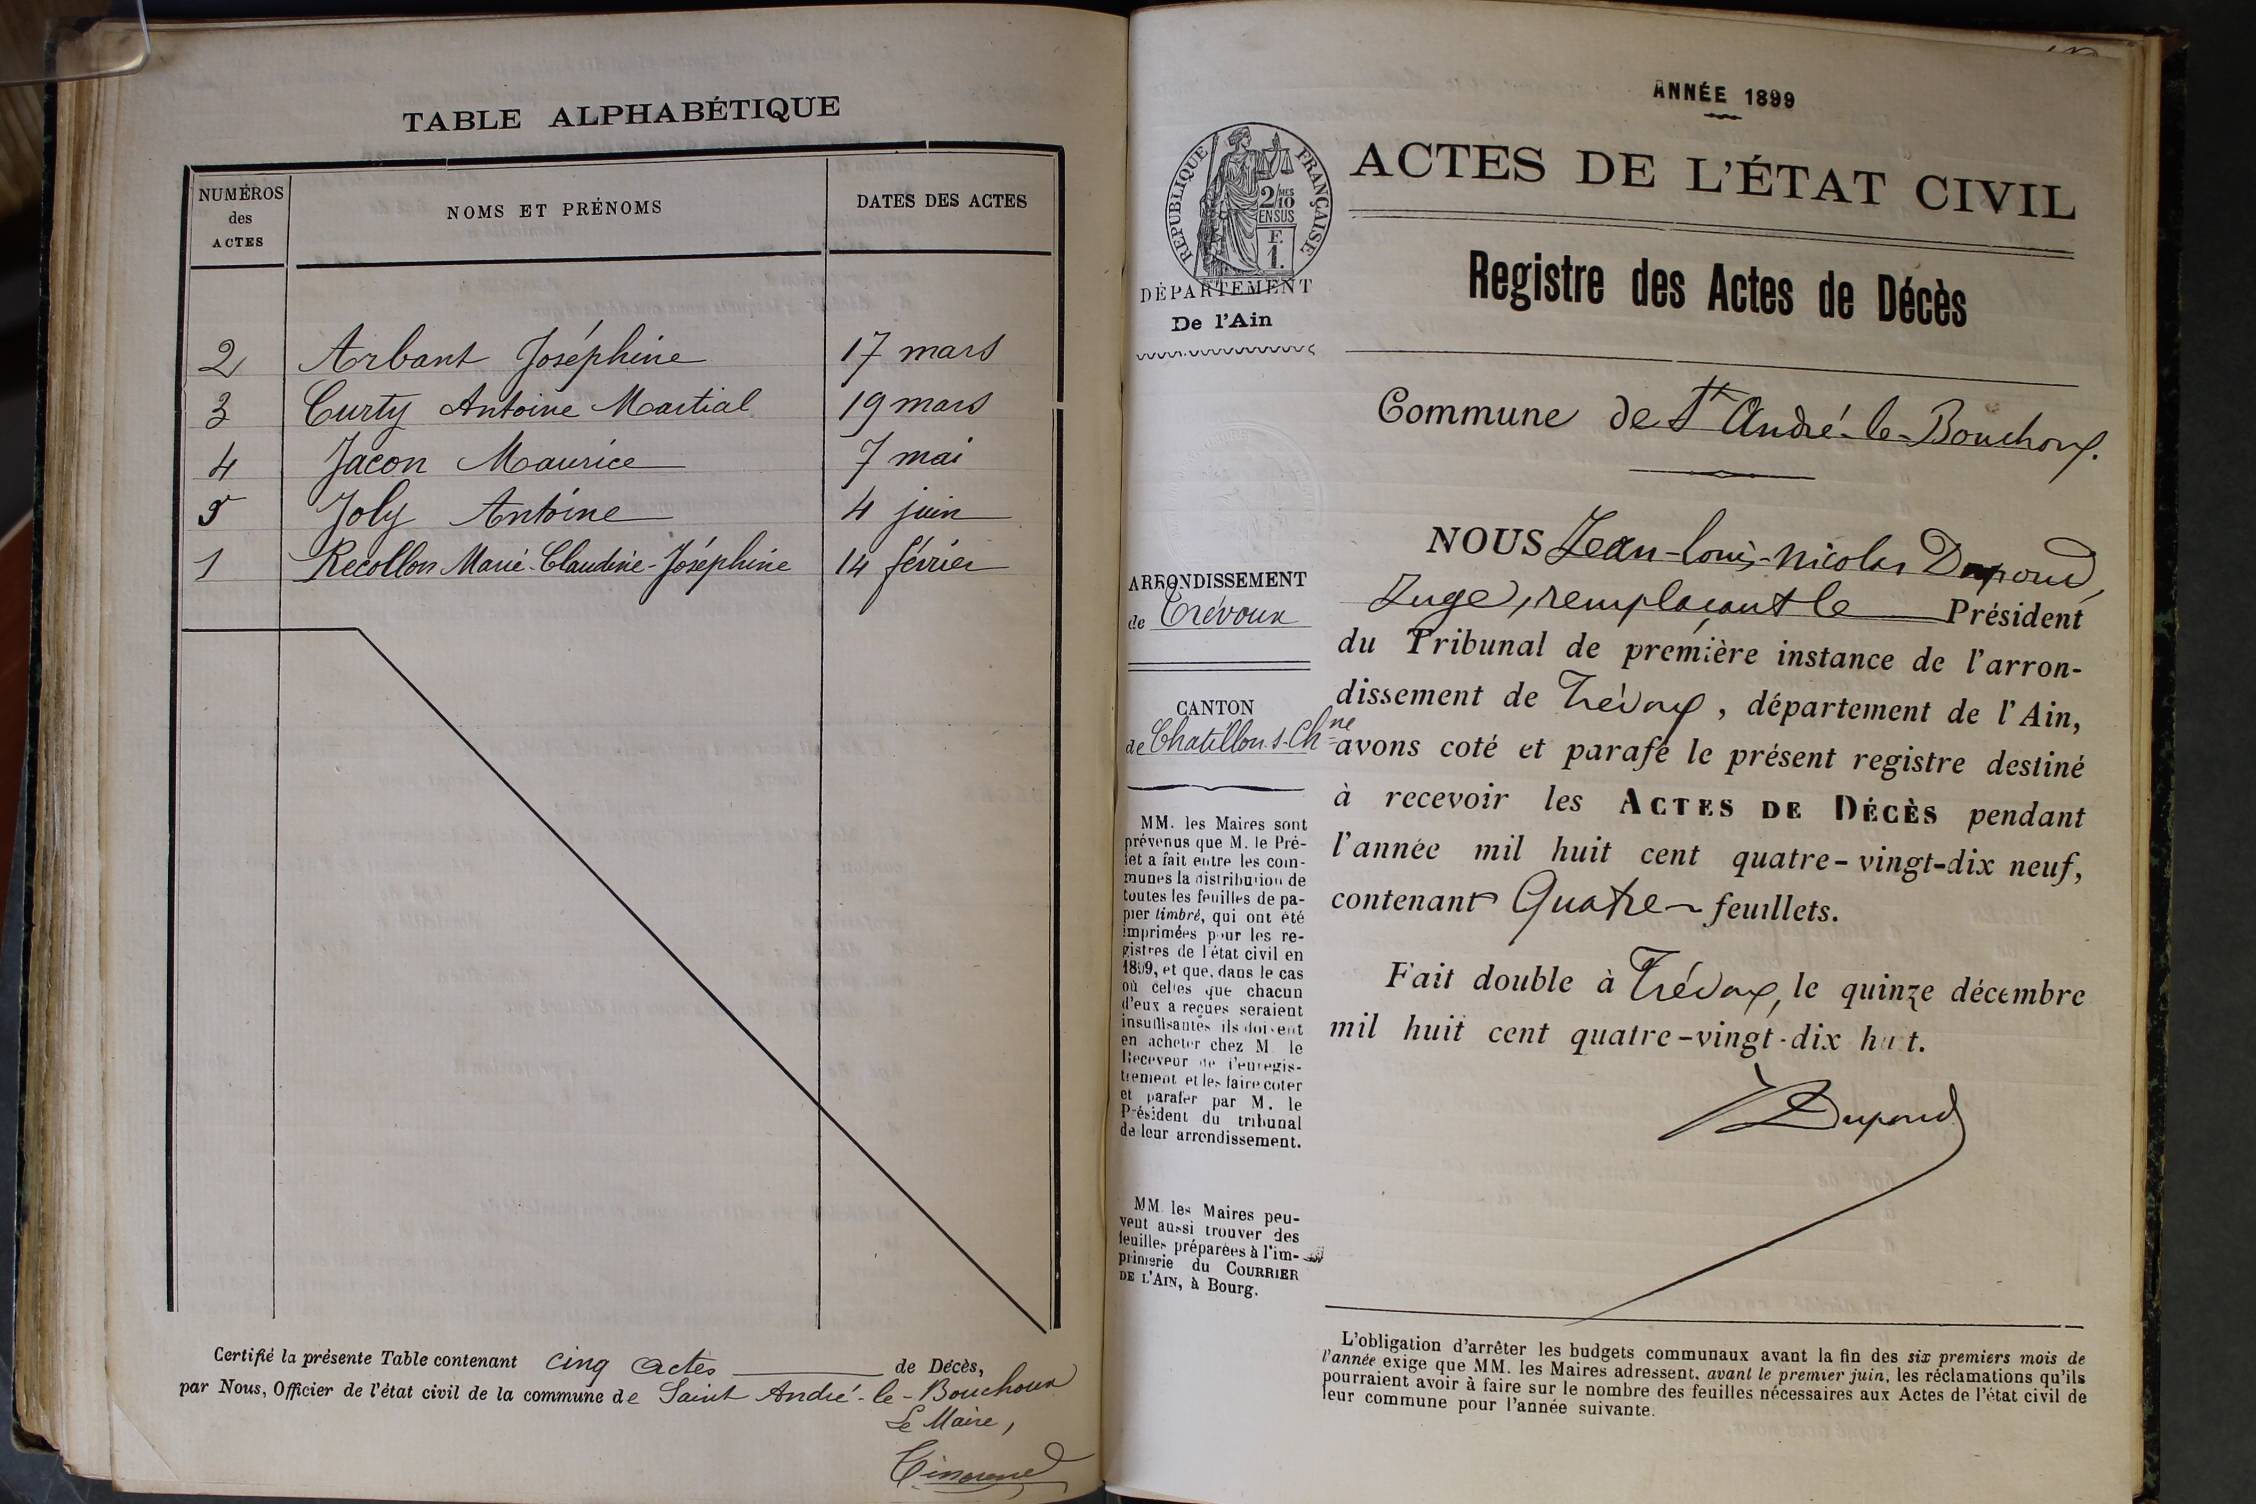 TABLE ALPHABÉTIQUE
NUMÉROS des ACTES
NOMS ET PRÉNOMS
DATES DES ACTES
2 Arbant Joséphine 17 mars
3 Curty Antoine Martial 19 mars
4 Jacon Maurice 7 mai
5 Joly Antoine 4 juin
1 Recollon Marie-Claudine-Joséphine 14 février
Certifié la présente Table contenant cinq actes de Décès,
par Nous, Officier de l'état civil de la commune de Saint André-le-Bouchoux
Le Maire,
ANNÉE 1899
ACTES DE L'ÉTAT CIVIL
RÉPUBLIQUE FRANÇAISE
2/10 MES
EN SUS
F.
1.
DÉPARTEMENT
De l'Ain
Registre des Actes de Décès
Commune de St André-le-Bouchoux.
ARRONDISSEMENT
de Trévoux
CANTON
de Chatillon-s-Chne
MM. les Maires sont
prévenus que M. le Pré-
fet a fait entre les com-
munes la distribution de
toutes les feuilles de pa-
pier timbré, qui ont été
imprimées pour les re-
gistres de l'état civil en
1899, et que, dans le cas
où celles que chacun
d'eux a reçues seraient
insuffisantes ils doivent
en acheter chez M. le
Receveur de l'enregis-
trement et les faire coter
et parafer par M. le
Président du tribunal
de leur arrondissement.
MM. les Maires peu-
vent aussi trouver des
feuilles préparées à l'im-
primerie du COURRIER
DE L'AIN, à Bourg.
NOUS Jean-Louis-Nicolas Dupoud,
Juge, remplaçant le Président
du Tribunal de première instance de l'arron-
dissement de Trévoux, département de l'Ain,
avons coté et parafé le présent registre destiné
à recevoir les ACTES DE DÉCÈS pendant
l'année mil huit cent quatre-vingt-dix neuf,
contenant Quatre feuillets.
Fait double à Trévoux, le quinze décembre
mil huit cent quatre-vingt-dix huit.
Dupoud
L'obligation d'arrêter les budgets communaux avant la fin des six premiers mois de
l'année exige que MM. les Maires adressent, avant le premier juin, les réclamations qu'ils
pourraient avoir à faire sur le nombre des feuilles nécessaires aux Actes de l'état civil de
leur commune pour l'année suivante.